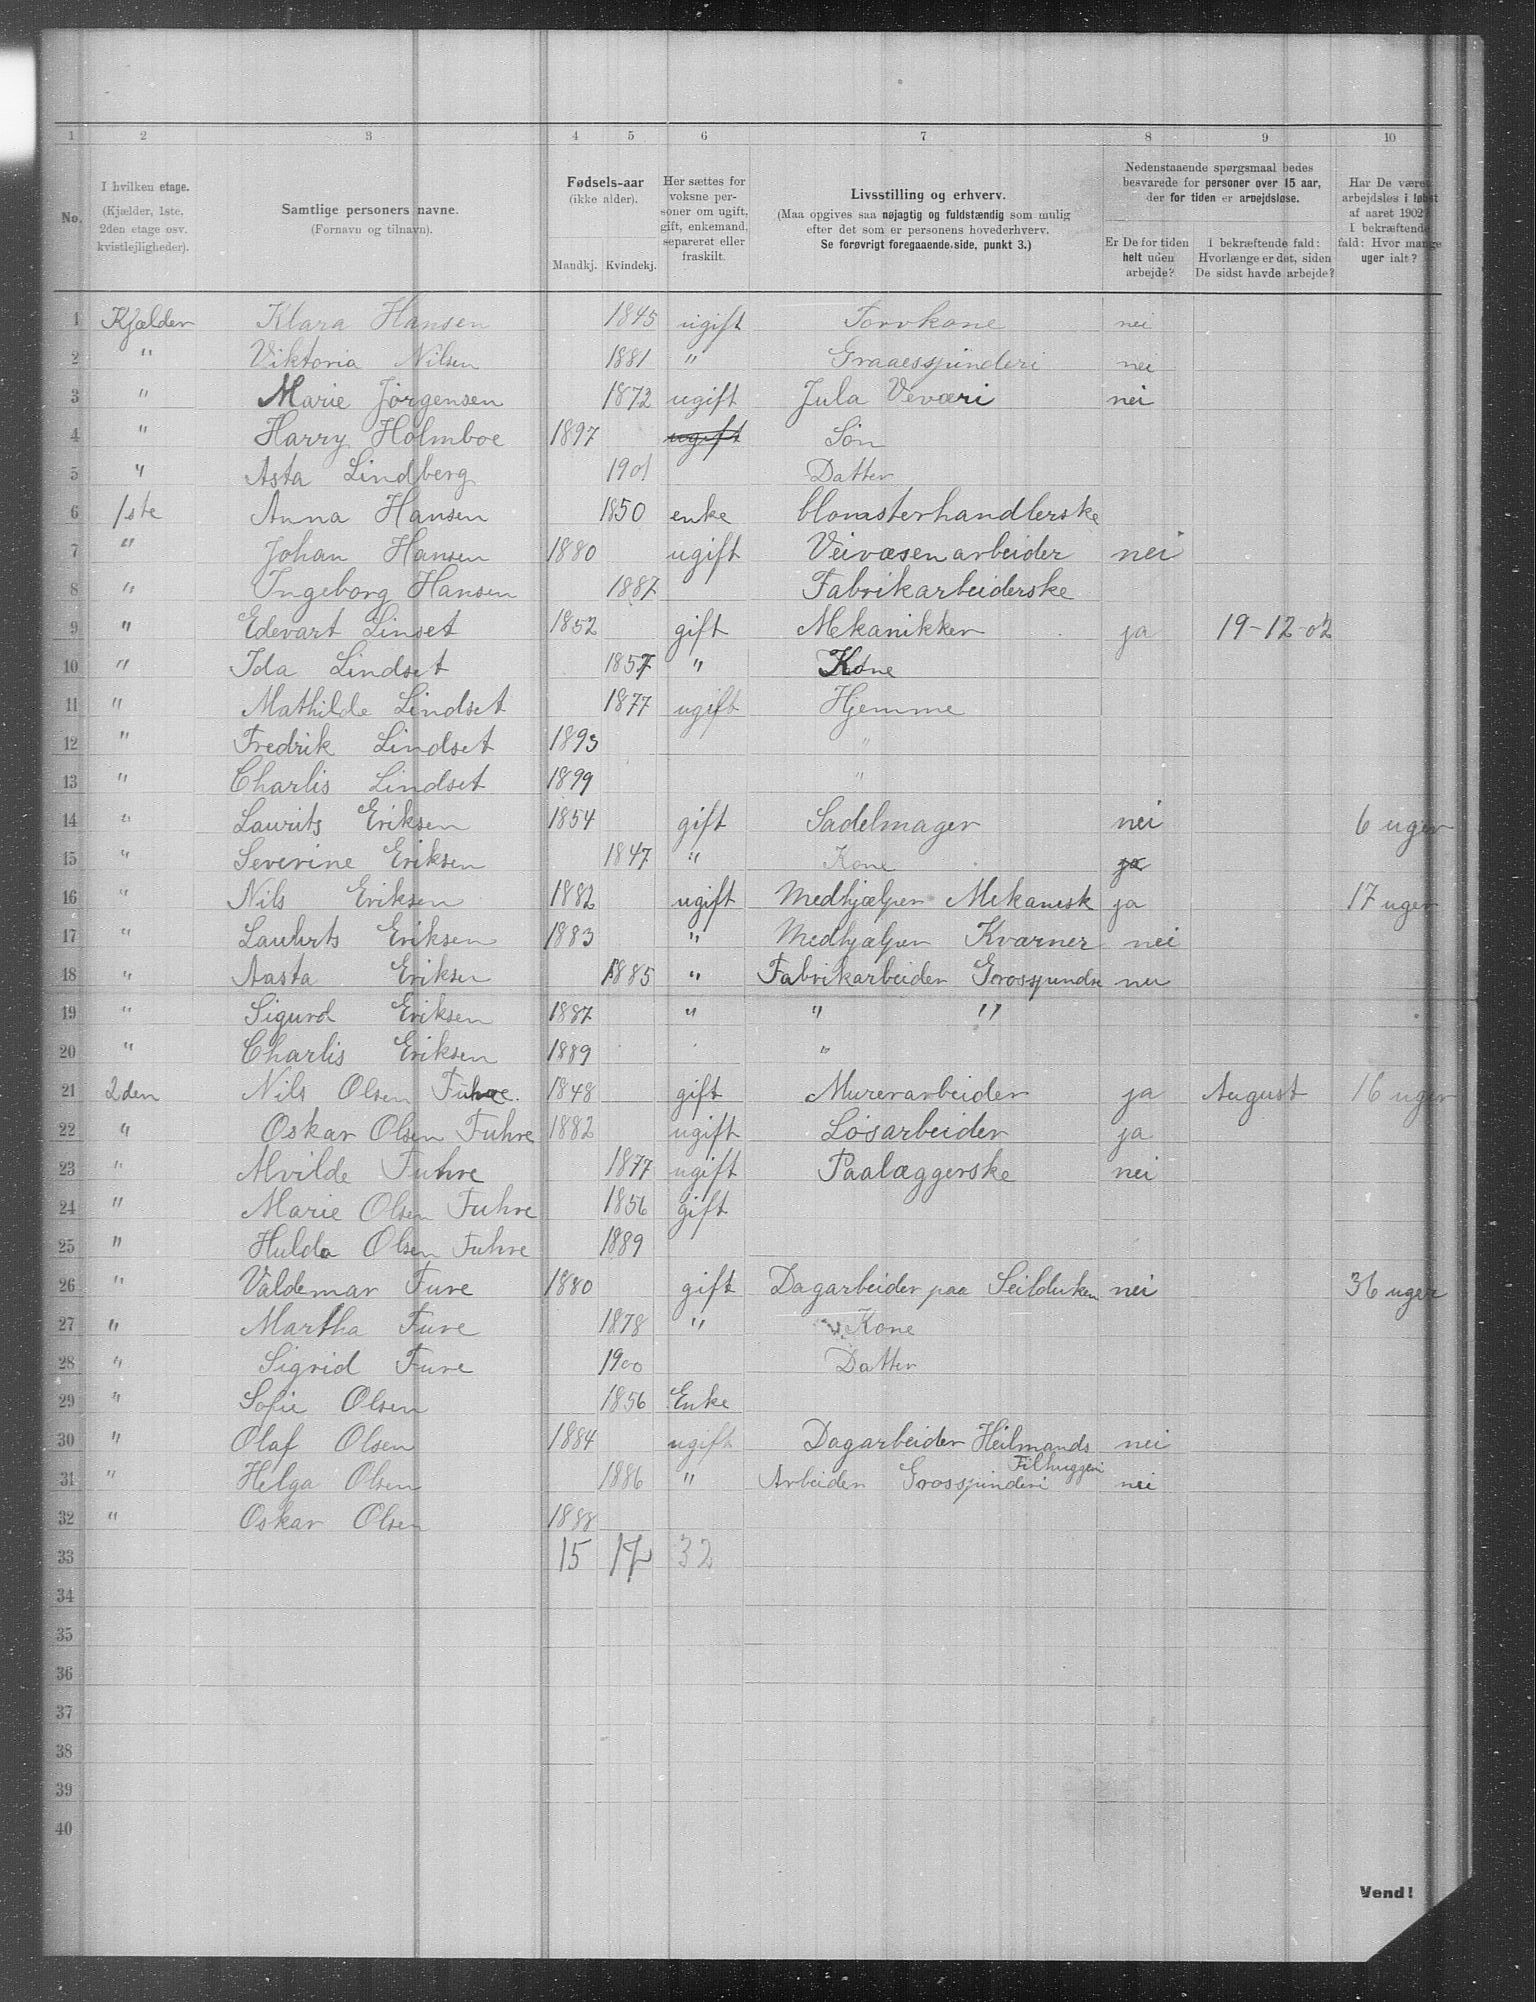 1 2 3 4 5 6 7 8 9 10
No.
I hvilken etage.
(Kjælder, 1ste,
2den etage osv.
kvistlejligheder).
Samtlige personers navne.
(Fornavn og tilnavn).
Fødsels-aar
(ikke alder).
Mandkj. Kvindekj.
Her sættes for
voksne per-
soner om ugift,
gift, enkemand,
separeret eller
fraskilt.
Livsstilling og erhverv.
(Maa opgives saa nøjagtig og fuldstændig som mulig
efter det som er personens hovederhverv.
Se forøvrigt foregaaende side, punkt 3.)
Nedenstaaende spørgsmaal bedes
besvarede for personer over 15 aar,
der for tiden er arbejdsløse.
Er De for tiden
helt uden
arbejde?
I bekræftende fald:
Hvorlænge er det, siden
De sidst havde arbejde?
Har De været
arbejdsløs i løbet
af aaret 1902?
I bekræftende
fald: Hvor mange
uger ialt?
1 Kjælder Klara Hansen 1845 ugift Torvkone nei
2 " Viktoria Nilsen 1881 " Graaesspinderi nei
3 " Marie Jörgensen 1872 ugift Jula Veværi nei
4 " Harry Holmboe 1897 ugift Sön
5 " Asta Lindberg 1901 Datter
6 1ste Anna Hansen 1850 enke blomsterhandlerske
7 " Johan Hansen 1880 ugift Veivæsenarbeider nei
8 " Ingeborg Hansen 1887 Fabrikarbeiderske
9 " Edevart Linset 1852 gift Mekanikker ja 19-12-02
10 " Ida Lindset 1857 " Kone
11 " Mathilde Lindset 1877 ugift Hjemme
12 " Fredrik Lindset 1893 "
13 " Charlis Lindset 1899 "
14 " Laurits Eriksen 1854 gift Sadelmager nei 6 uger
15 " Severine Eriksen 1847 " Kone ja
16 " Nils Eriksen 1882 ugift Medhjælper Mekanisk ja 17 uger
17 " Laurits Eriksen 1883 " Medhjælper Kværner nei
18 " Aasta Eriksen 1885 " Fabrikarbeider Grosspinderi nei
19 " Sigurd Eriksen 1887 " " "
20 " Charlis Eriksen 1889 "
21 2den Nils Olsen Fuhre. 1848 gift Murerarbeider ja August 16 uger
22 " Oskar Olsen Fuhre 1882 ugift Lösarbeider ja
23 " Mvilde Fuhre 1877 ugift Paalæggerske nei
24 " Marie Olsen Fuhre 1856 gift
25 " Hulda Olsen Fuhre 1889
26 " Valdemar Fure 1880 gift Dagarbeider paa Seilduken nei 36 uger
27 " Martha Fure 1878 " Kone
28 " Sigrid Fure 1900 Datter
29 " Sofie Olsen 1856 Enke
30 " Olaf Olsen 1884 ugift Dagarbeider Heilmands nei
Filhuggeri
31 " Helga Olsen 1886 " Arbeider Grosspinderi nei
32 " Oskar Olsen 1888
33 15 17 32
34
35
36
37
38
39
40
Vend!